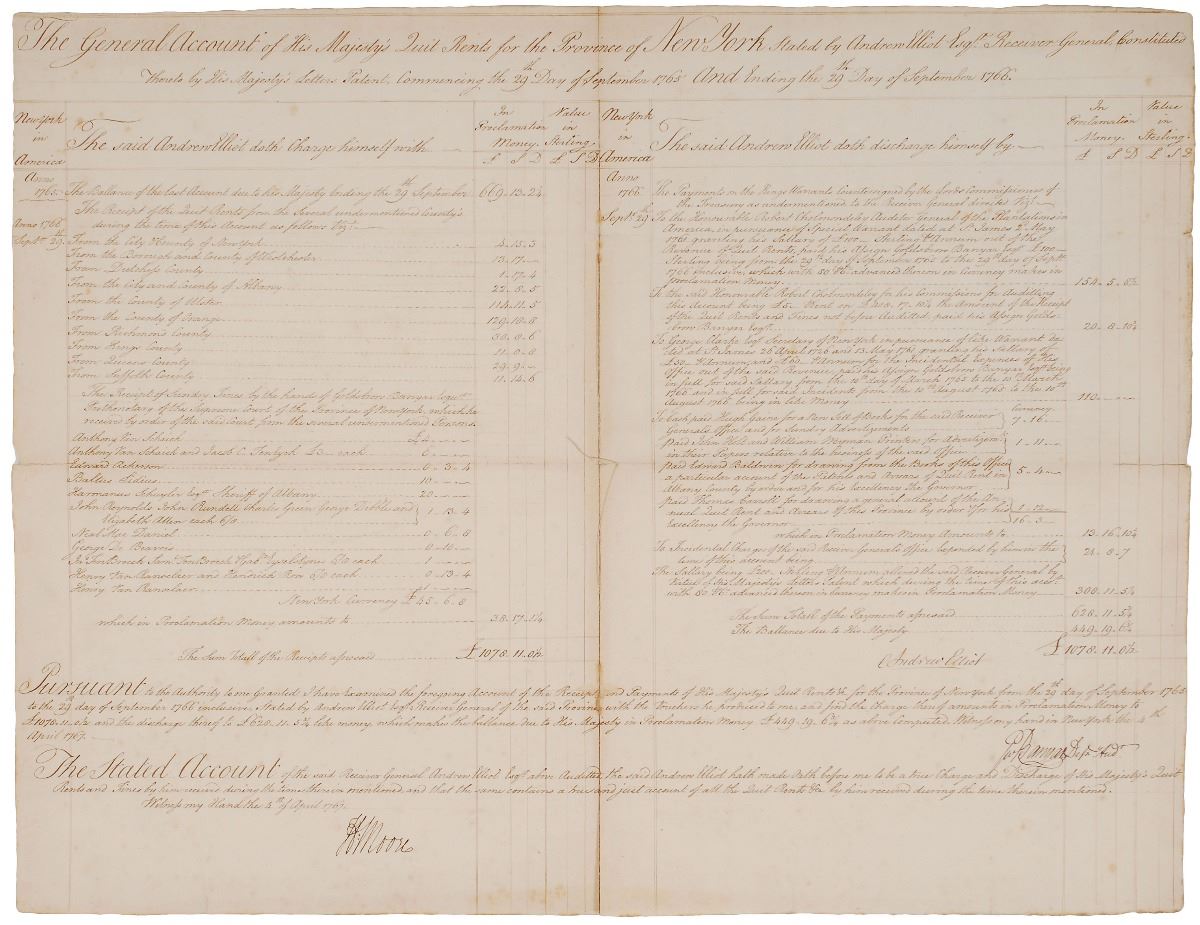 The General Account of His Majesty's Quit Rents for the Province of New York Stated by Andrew Elliot Esqr. Receiver General, Constituted
thereto by His Majesty's Letters Patent, Commencing the 29th Day of September 1765 And Ending the 29th Day of September 1766.
New York in America
The said Andrew Elliot doth Charge himself with
In Proclamation Money.
£ S D
Value in Sterling
£ S D
Anno 1765
The Ballance of the last Account due to his Majesty Ending the 29th September 669-13-2¼
Anno 1766
The Receipt of the Quit Rents from the Several undermentioned County's
during the time of this Account as follows Vizt.
Septr. 29
From the City & County of New York 4-15-3
From the Borough and County of Westchester 13-17-
From Dutchess County 1-17-4
From the City and County of Albany 22-8-5
From the County of Ulster 114-11-5
From the County of Orange 129-18-8
From Richmond County 30-8-6
From Kings County 11-0-8
From Queens County 29-9-
From Suffolk County 11-14-6
The Receipt of Sundry Fines by the hands of Goldsbrow Banyar Esqr.
Prothonotary of the Supreme Court of the Province of New York, which he
received by order of the said Court from the several undermentioned Persons.
Anthony Van Schaick £4
Anthony Van Schaick and Jacob C. Ten Eyck £3 each 6
Edward Ackerson 0-3-4
Baltus Lidius 10
Harmanus Schuyler Esqr. Sheriff of Albany 20
John Reynolds John Rundell Charles Green George Dibble and
Elizabeth Allen each 6/8 1-13-4
Neal Mac Daniel 0-6-8
George De Bearris 0-10-
each 1
Henry Van Ranselaer and Hendrick Ron £0 each 0-13-4
Henry Van Ranselaer
New York Currency £45-6-8
which in Proclamation Money amounts to 38-17-1¼
The Sum Totall of the Receipts aforesaid £1078-11-0½
New York in America
The said Andrew Elliot doth discharge himself by
In Proclamation Money.
£ S D
Value in Sterling
£ S D
Anno 1766
The Payments on the Kings Warrants Countersigned by the Lords Commissioners of
the Treasury as undermentioned to the Receiver General directed Vizt.
Septr. 29
To the Honourable Robert Cholmondeley Auditor General of the Plantations in
America, in pursuance of Special Warrant dated at St. James 2d. May
1761 granting his Sallary of £100 Sterling ⅌ Annum out of the
Revenue of Quit Rents, paid his Assign Goldsbrow Banyar Esqr. £100
Sterling being from the 29th day of September 1765 to the 29th day of Septr.
1766 inclusive, which with 80 ⅌ Ct. advanced thereon in Currency makes in
Proclamation Money 154-5-8½
To the said Honourable Robert Cholmondeley for his Commissions for Auditing
this Account being £5 ⅌ Cent on £408-17-10¼ the Amount of the Receipt
of the Quit Rents and Fines not before Audited paid his Assign Golds-
brow Banyar Esqr. 20-8-10¾
To George Clarke Esqr. Secretary of New York in pursuance of like Warrant da-
ted at St. James 26 April 1720 and 13 May 1761 granting his Sallary of
£30 ⅌ Annum and £60 ⅌ Annum for the Incidental Expences of His
Office out of the said Revenue, paid his Assign Goldsbrow Banyar Esqr. being
in full for said Sallary from the 18th day of March 1765 to the 18 March
1766 and in full for said Incidents from the 10th August 1765 to the 10th
August 1766 being in like Money 110
Currency
To Cash paid Hugh Gaine for a ten Sett of Books for the said Receiver
Generals Office and for Sundry Advertizements 7-16-
Paid John Holt and William Weyman Printers for Advertizing
in their Papers relative to the business of the said Office 1-11-
Paid Edward Baldwin for drawing from the Books of this Office
a particular account of the Patents and Arrears of Quit Rent in
Albany County by order and for his Excellency the Governor 5-4-
paid Thomas Carroll for drawing a general account of the An-
nual Quit Rent and Arrears of this Province by order & for his
Excellency the Governor 1-12-
16-3-
which in Proclamation Money Amounts to 13-16-10¼
To Incidental Charges of the said Receiver Generals Office expended by him in the
time of this account being 21-8-7
The Sallary being £200 Sterling ⅌ Annum allowed the said Receiver General by
Virtue of his Majesty's Letters Patent which during the time of this acct.
with 80 ⅌ Ct. advanced thereon in Currency makes in Proclamation Money 308-11-5¼
The Sum Totall of the Payments aforesaid 628-11-5¾
The Ballance due to His Majesty 449-19-6¾
£1078-11-0½
Andrew Elliot
Pursuant to the Authority to me Granted, I have Examined the foregoing Account of the Receipts and Payments of His Majesty's Quit Rents &c. for the Province of New York from the 29th day of September 1765
to the 29 day of September 1766 inclusive, Stated by Andrew Elliot Esqr. Receiver General of the said Province with the Vouchers he produced to me, and find the Charge thereof amounts in Proclamation Money to
£1078-11-0½ and the discharge thereof to £628-11-5¾ like money, which makes the ballance due to His Majesty in Proclamation Money £449-19-6¾ as above Computed. Witness my hand in New York the 4th
April 1767.
Go. Banyar Depy. Audr.
The Stated Account of the said Receiver General Andrew Elliot Esqr. above Audited, the said Andrew Elliot hath made Oath before me to be a true Charge and Discharge of His Majesty's Quit
Rents and Fines by him received during the time therein mentioned and that the same contains a true and just account of all the Quit Rents &ca. by him received during the time therein mentioned.
Witness my Hand the 4th of April 1767.
H: Moore